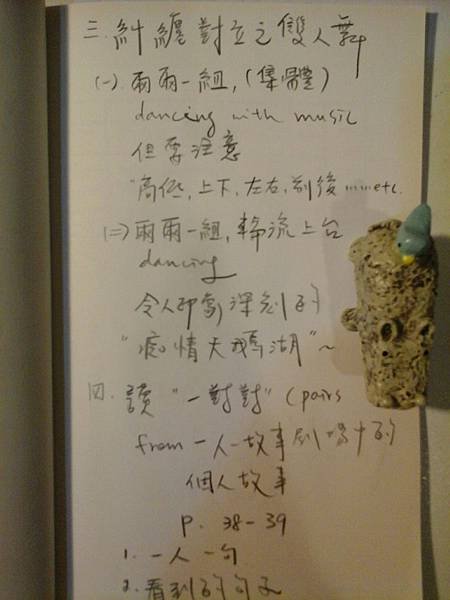 三. 糾纏對立之雙人舞
(一). 兩兩一組, (集體)
dancing with music
但要注意
"高低, 上下, 左右, 前後......etc.
(二) 兩兩一組, 輪流上台
dancing
令人印象深刻的
"痴情天鵝湖" ~
四. 讀 "一對對" (pairs
from 一人一故事劇場中的
個人故事
P. 38-39
1. 一人一句
2. 看到的句子